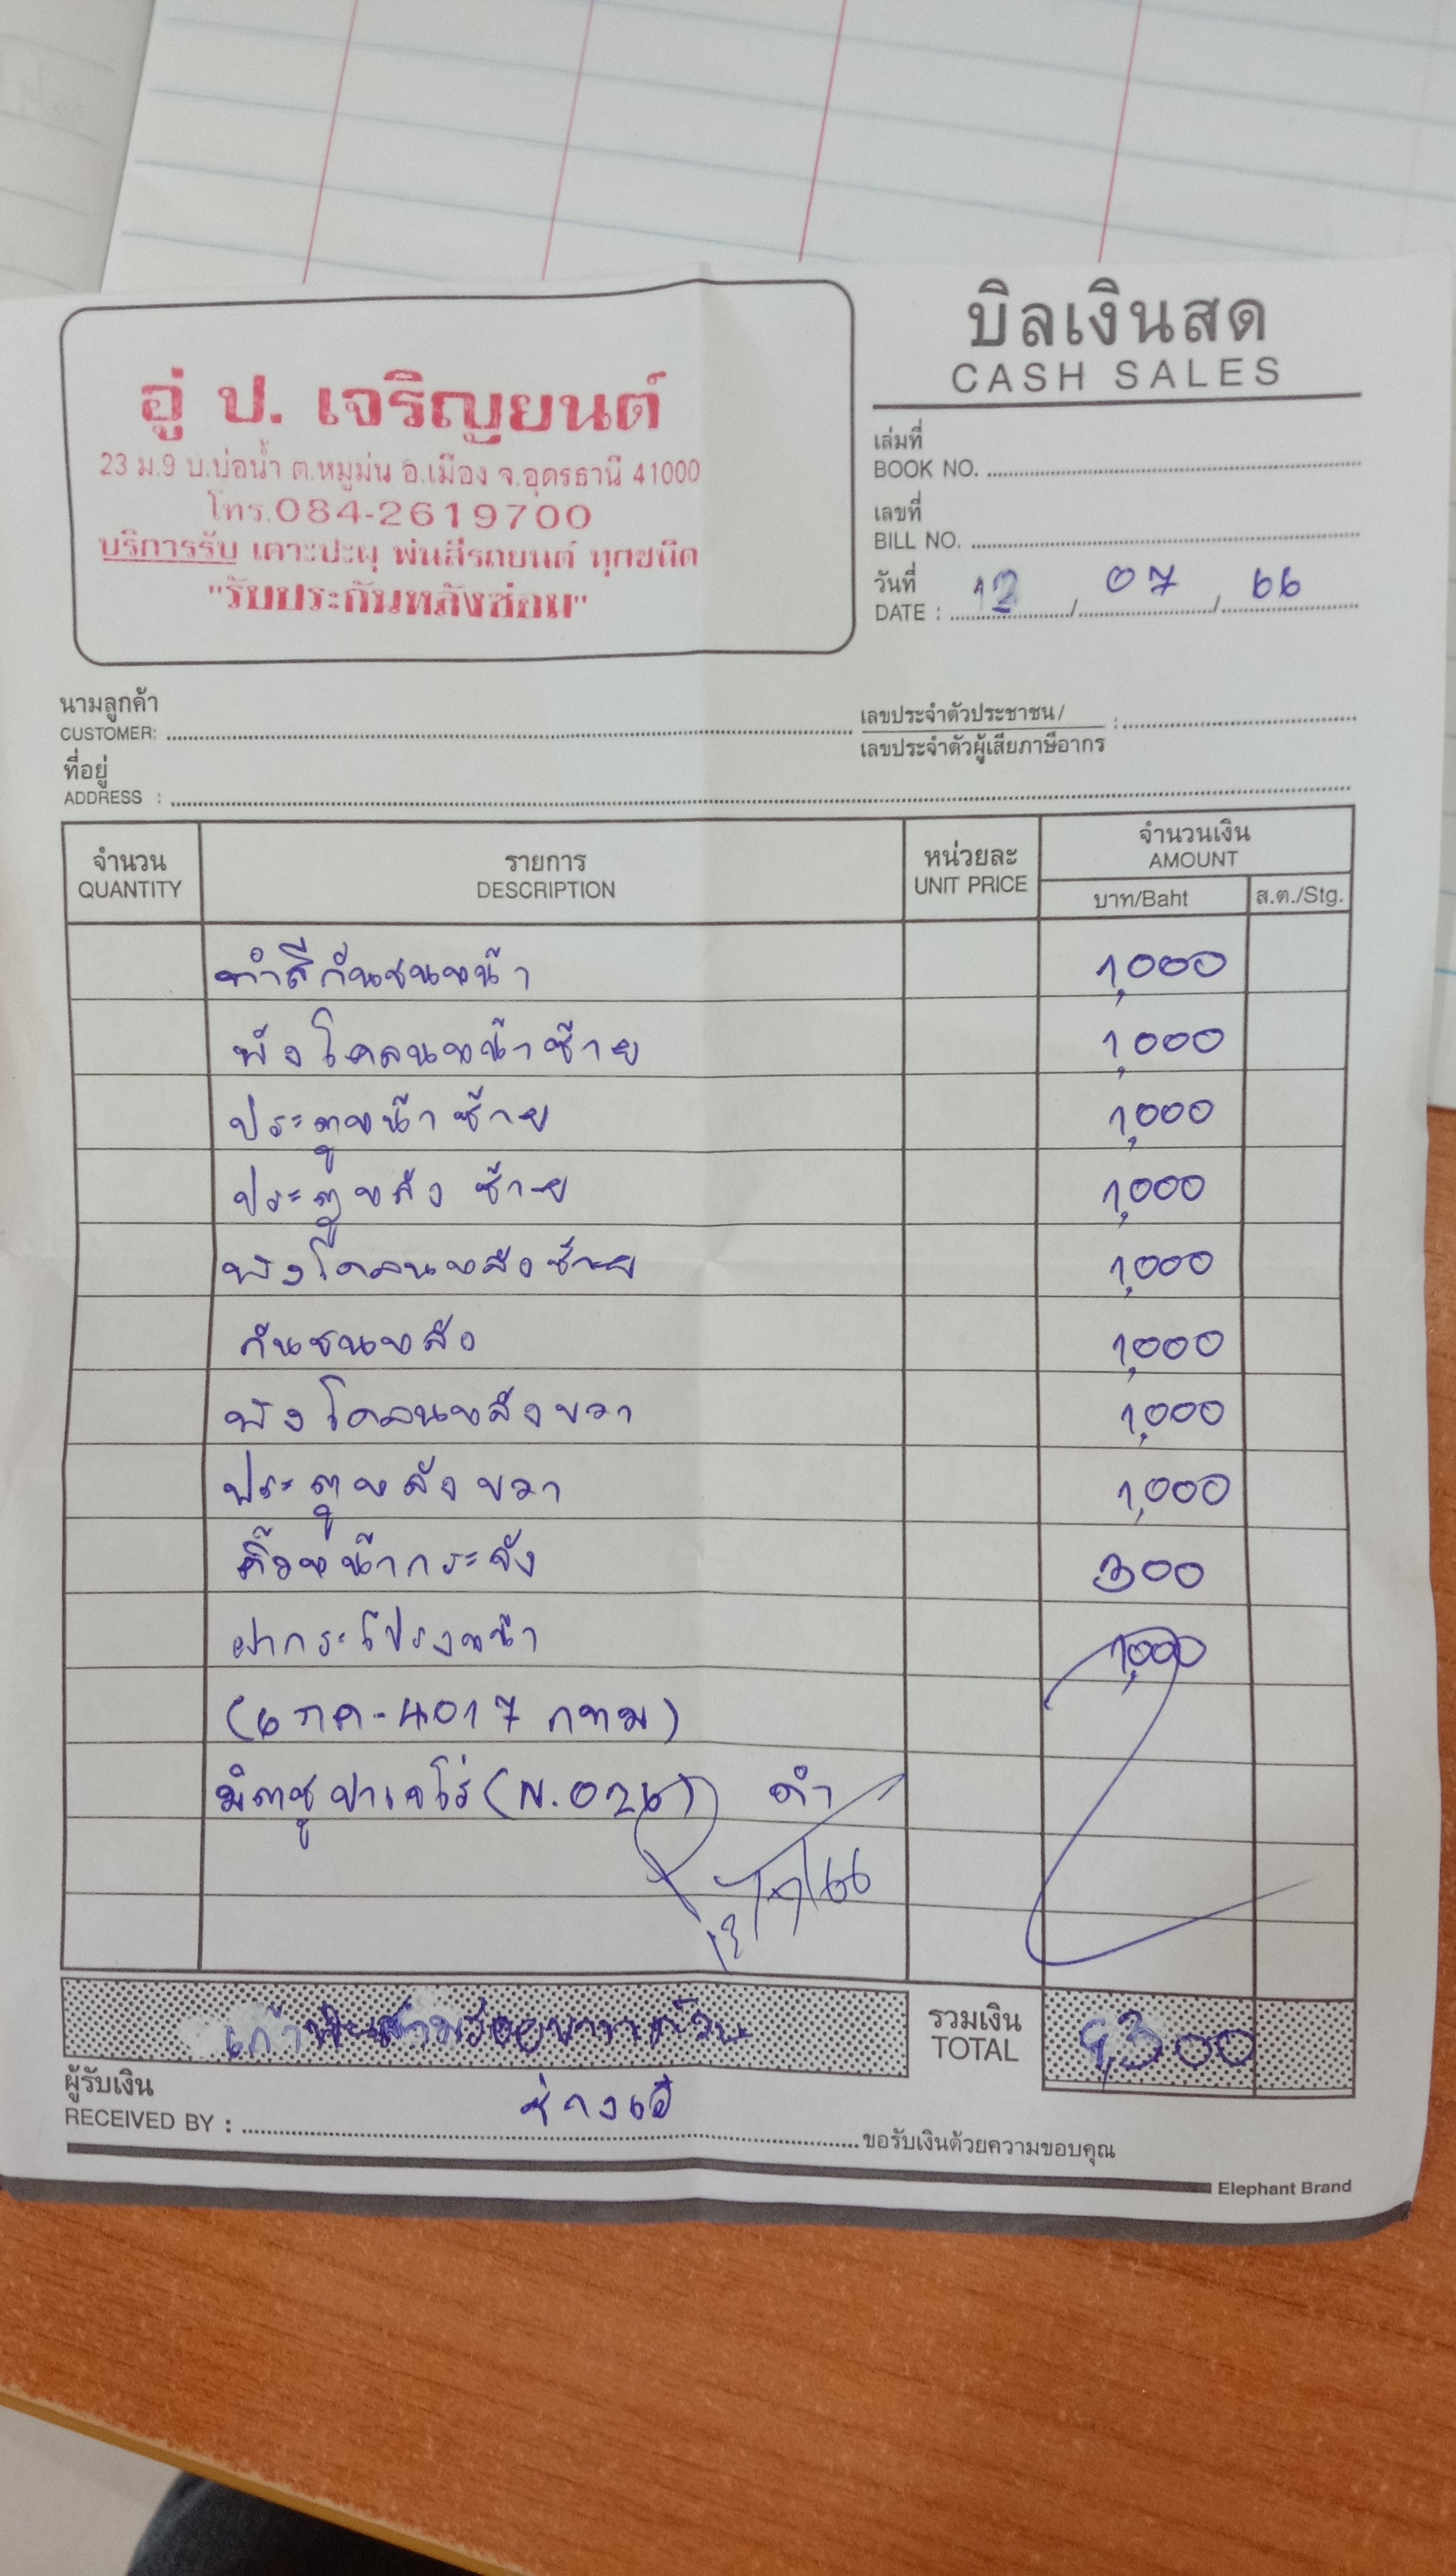 บิลเงินสด
CASH SALES
อู่ ป. เจริญยนต์
23 ม.9 บ.บ่อน้ำ ต.หมูม่น อ.เมือง จ.อุดรธานี 41000
โทร.084-2619700
บริการรับ เคาะปะผุ พ่นสีรถยนต์ ทุกชนิด
"รับประกันหลังซ่อม"
เล่มที่
BOOK NO.
เลขที่
BILL NO.
วันที่
DATE : 12 / 07 / 66
นามลูกค้า
CUSTOMER:
เลขประจำตัวประชาชน /
เลขประจำตัวผู้เสียภาษีอากร :
ที่อยู่
ADDRESS :
จำนวน รายการ หน่วยละ จำนวนเงิน
QUANTITY DESCRIPTION UNIT PRICE AMOUNT
บาท/Baht ส.ต./Stg.
ทำสีกันชนหน้า 1,000
บังโคลนหน้าซ้าย 1,000
ประตูหน้าซ้าย 1,000
ประตูหลังซ้าย 1,000
บังโคลนหลังซ้าย 1,000
กันชนหลัง 1,000
บังโคลนหลังขวา 1,000
ประตูหลังขวา 1,000
คิ้วหน้ากระจัง 300
ฝากระโปรงหน้า 1,000
(6กค-4017 กทม)
มิตซูปาเจโร่ (N.026) ดำ
12/7/66
เก้าพันสามร้อยบาทถ้วน
รวมเงิน
TOTAL 9,300
ผู้รับเงิน
RECEIVED BY : ช่างเอ๋ ขอรับเงินด้วยความขอบคุณ
Elephant Brand